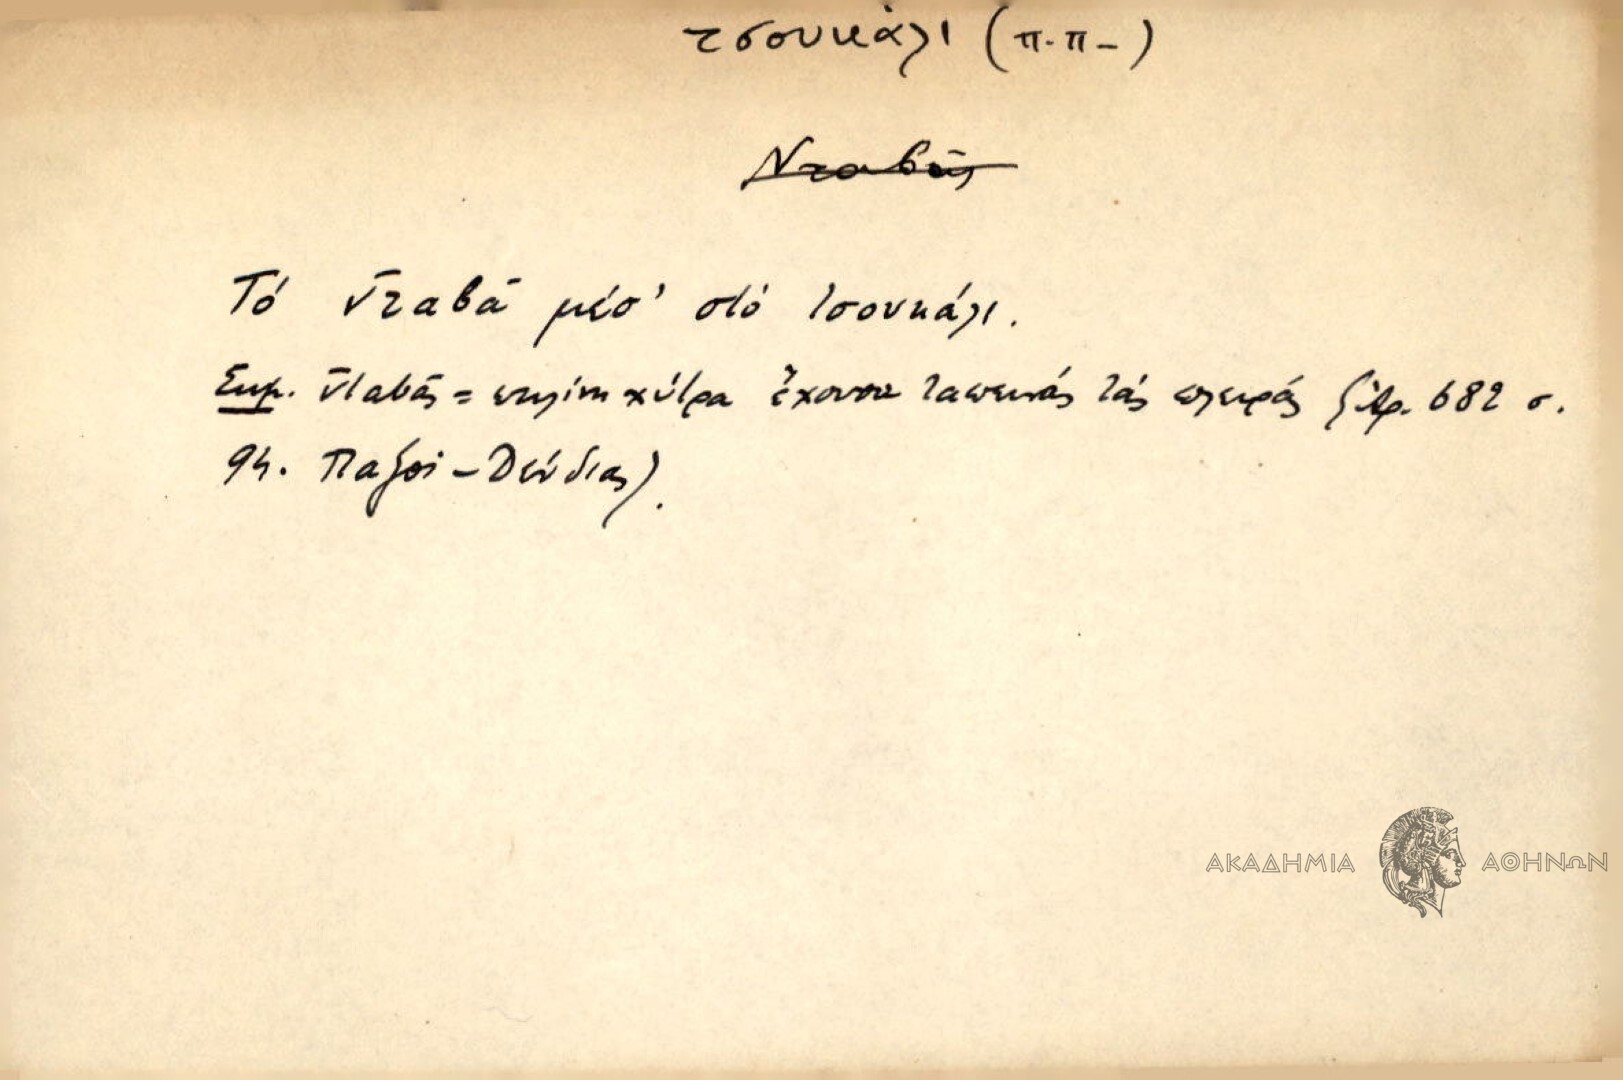 τσουκάλι (π.π-)
Νταβάς
Τό νταβά μέσ' στό τσουκάλι.
Σημ. νταβάς = πηλίνη χύτρα ἔχουσα ταπεινάς τάς πλευράς (Ἀρ. 682 σ.
94. Παξοί - Δενδιας).
ΑΚΑΔΗΜΙΑ ΑΘΗΝΩΝ